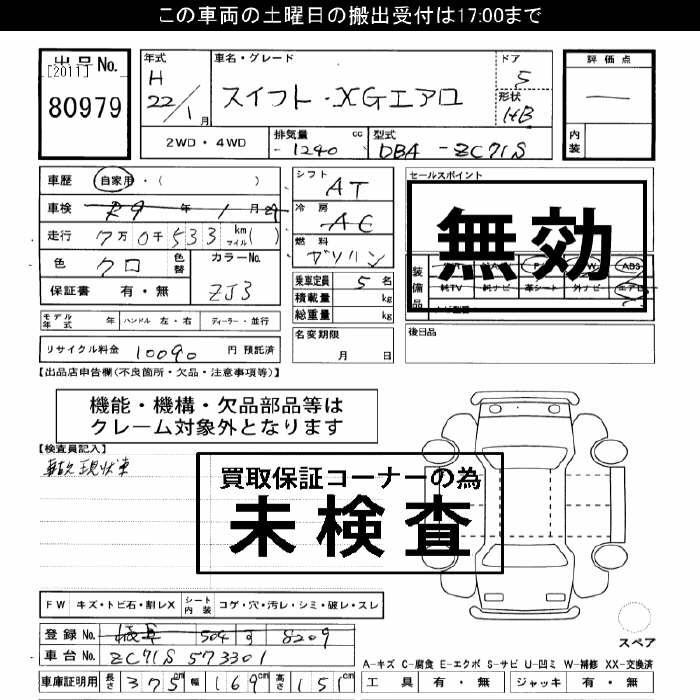 この車両の土曜日の搬出受付は17:00まで
出品No.
[2011]
80979
年式
H
22/1月
車名・グレード
スイフト・XGエアロ
ドア
5
形状
HB
評価点
—
内装
2WD・4WD
排気量 cc
1240
型式
DBA - ZC71S
車歴 自家用・( )
車検 R9年 1月
走行 7万0千533 km マイル( )
色 クロ 色替
カラーNo.
ZJ3
保証書 有・無
シフト
AT
冷房
AC
燃料
ガソリン
乗車定員 5名
積載量 kg
総重量 kg
セールスポイント
無効
装備品
AB3
純TV 純ナビ 革シート 外ナビ エアロ
モデル年式 年 ハンドル 左・右 ディーラー・並行
リサイクル料金 10090 円 預託済
名変期限
月 日
後日品
【出品店申告欄(不良箇所・欠品・注意事項等)】
機能・機構・欠品部品等は
クレーム対象外となります
【検査員記入】
現状車
買取保証コーナーの為
未検査
FW キズ・トビ石・割レX シート内装 コゲ・穴・汚レ・シミ・破レ・スレ
登録No. 岐阜 504 す 8209
車台No. ZC71S 573301
車庫証明用 長さ 375cm 幅 169cm 高さ 151cm
スペア
A-キズ C-腐食 E-エクボ S-サビ U-凹ミ W-補修 XX-交換済
工具 有・無 ジャッキ 有・無